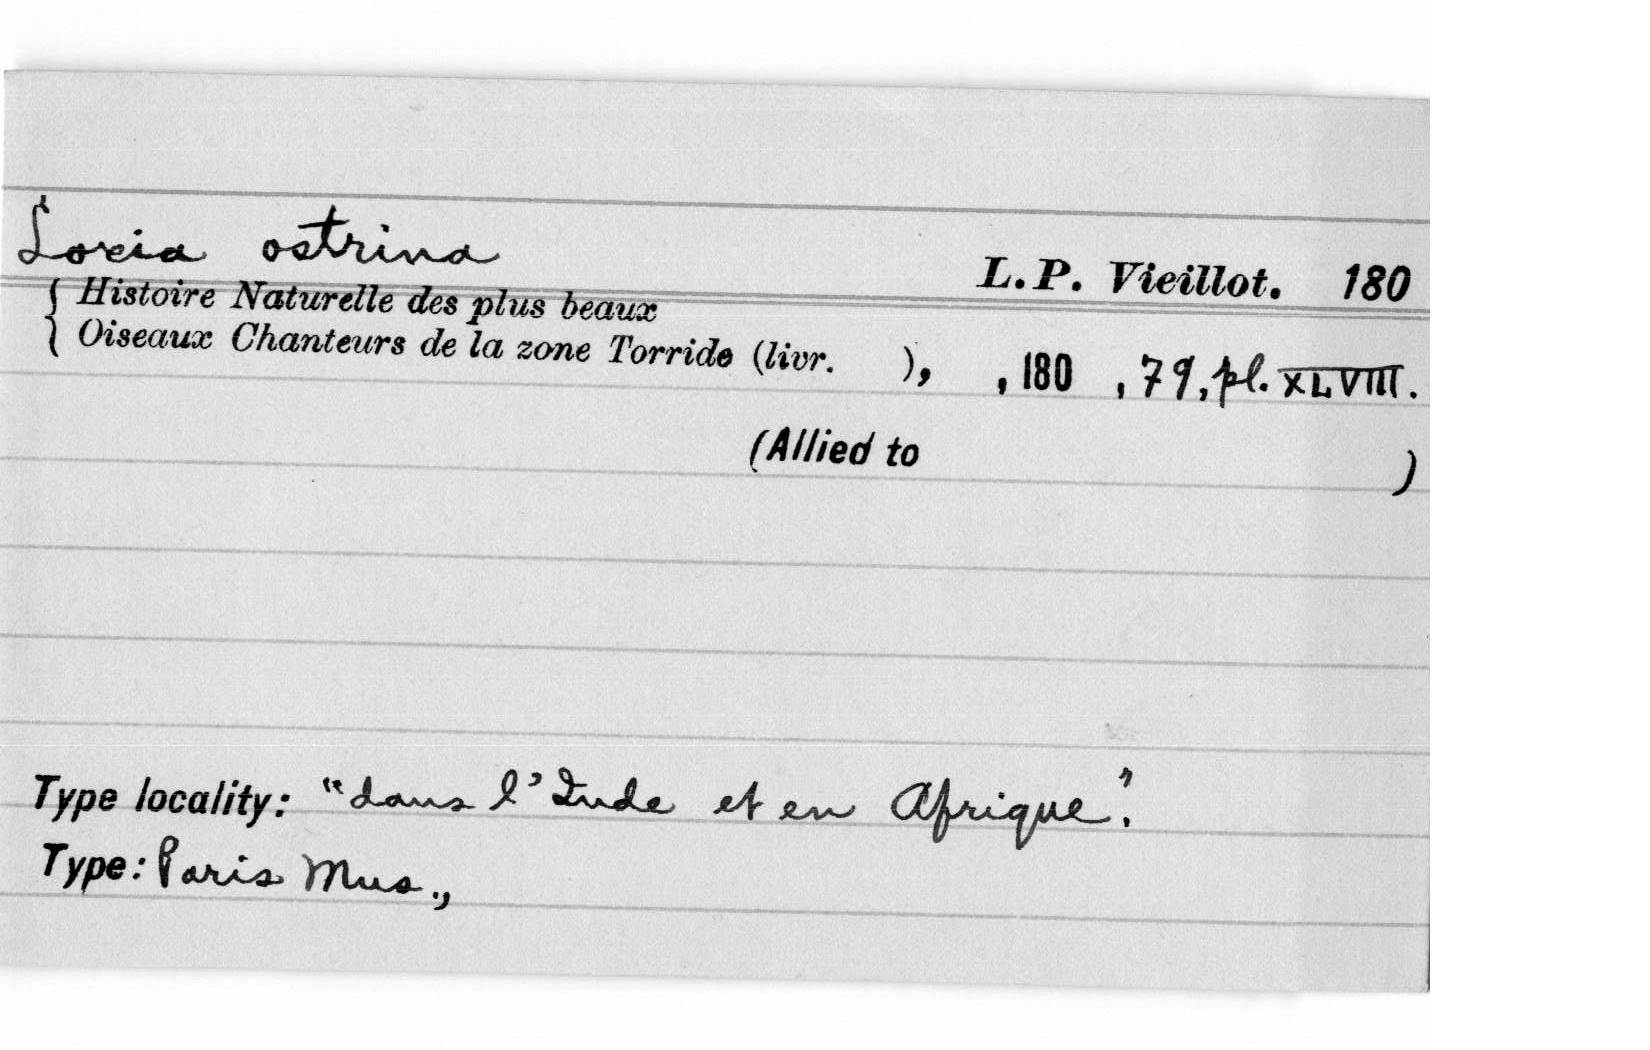 Loxia ostrina
L. P. Vieillot. 180
{ Histoire Naturelle des plus beaux
Oiseaux Chanteurs de la zone Torride (livr. ), , 180 , 79, pl. XLVIII.
(Allied to )
Type locality: "dans l'Inde et en Afrique".
Type: Paris Mus.,